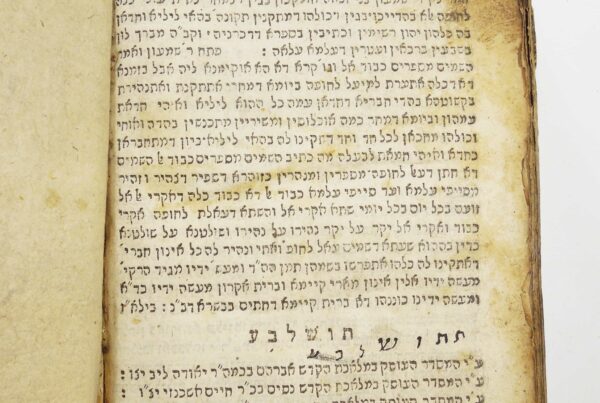 לחופה לא בהדייכו בגין דכולהו דמתקנין תקונה בהאי ליליא וחדאן
בה כלהון יהון רשימין וכתיבין בספרא דדכרניה וקב״ה מברך לון
בשבעין ברכאן ועטרין דעלמא עלאה : פתח ר׳ שמעון ואמר
השמים מספרים כבוד אל וגו׳ קרא דא הא אוקימנא ליה אבל בזמנא
דא דכלה אתערת למיעל לחופה ביומא דמחרי אתתקנת ואתנהירת
בקשוטהא בהדי חברייא דחדאן עמה כל ההוא ליליא ואיהי חדאת
עמהון וביומא דמחר כמה אוכלוסין ומשיריין מתכנשין בהדה ואיהי
וכולהו מחכאן לכל חד וחד דתקינו לה בהאי ליליא כיון דמתחבראן
כחדא ואיהי חמאת לבעלה מה כתיב השמים מספרים כבוד אל השמים
דא חתן דעל לחופה מספרין ומנהרין כזוהרא דספיר דנהיר וזהיר
מסייפי עלמא ועד סייפי עלמא כבוד אל דא כבוד כלה דאקרי אל אל
זועם בכל יום בכל יומי שתא אקרי אל והשתא דעאלת לחופה אקרי
כבוד ואקרי אל יקר על יקר נהירו על נהירו ושולטנא על שולטנא
כדין בההוא שעתא דשמים עאל לחופה ואתי ונהיר לה כל אינון חברי׳
דאתקינו לה כלהו אתפרשו בשמהן תמן הה״ד ומעש׳ ידיו מגיד הרקי׳
מעשה ידיו אלין אינון מארי קיימא וברית אקרון מעשה ידיו כד״א
ומעשה ידינו כוננהו דא ברית קיימא דחתים בבשרא דב״נ :
תושלבע
תתושלבע
ע״י המסדר העוסק במלאכת הקדש אברהם בכמה״ר יאודה ליב יצ״ו :
ע״י המסדר העוסק במלאכת הקדש נסים בכ״ר חיים אשכנזי יצ״ו :